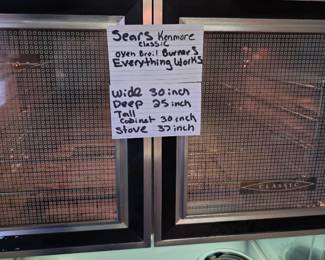 Sears Kenmore
classic
oven Broil Burners
Everything Works
Wide 30 inch
Deep 25 inch
Tall
cabinet 30 inch
Stove 37 inch
CLASSIC